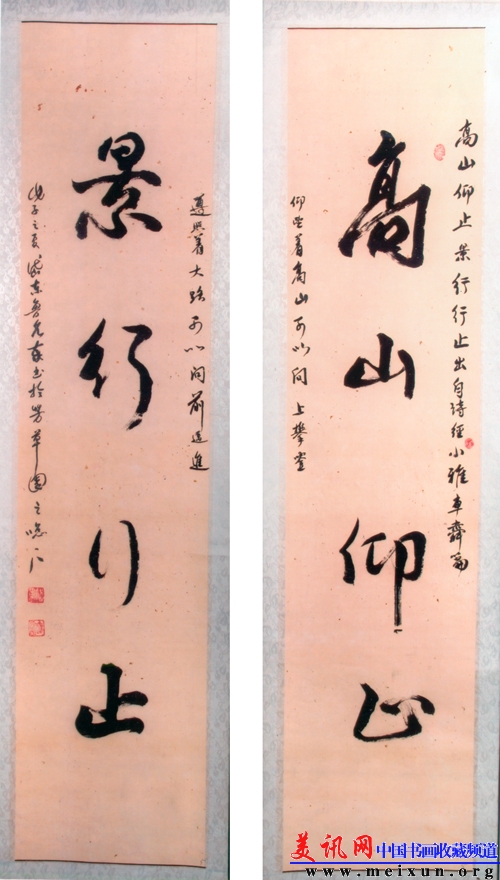 高山仰止景行行止出自诗经小雅车舝
高山仰止
仰望着高山可以向上攀登
遵照着大路可以向前迈进
景行行止
戊子之夏
美讯网 中国书画收藏频道
www.meixun.org